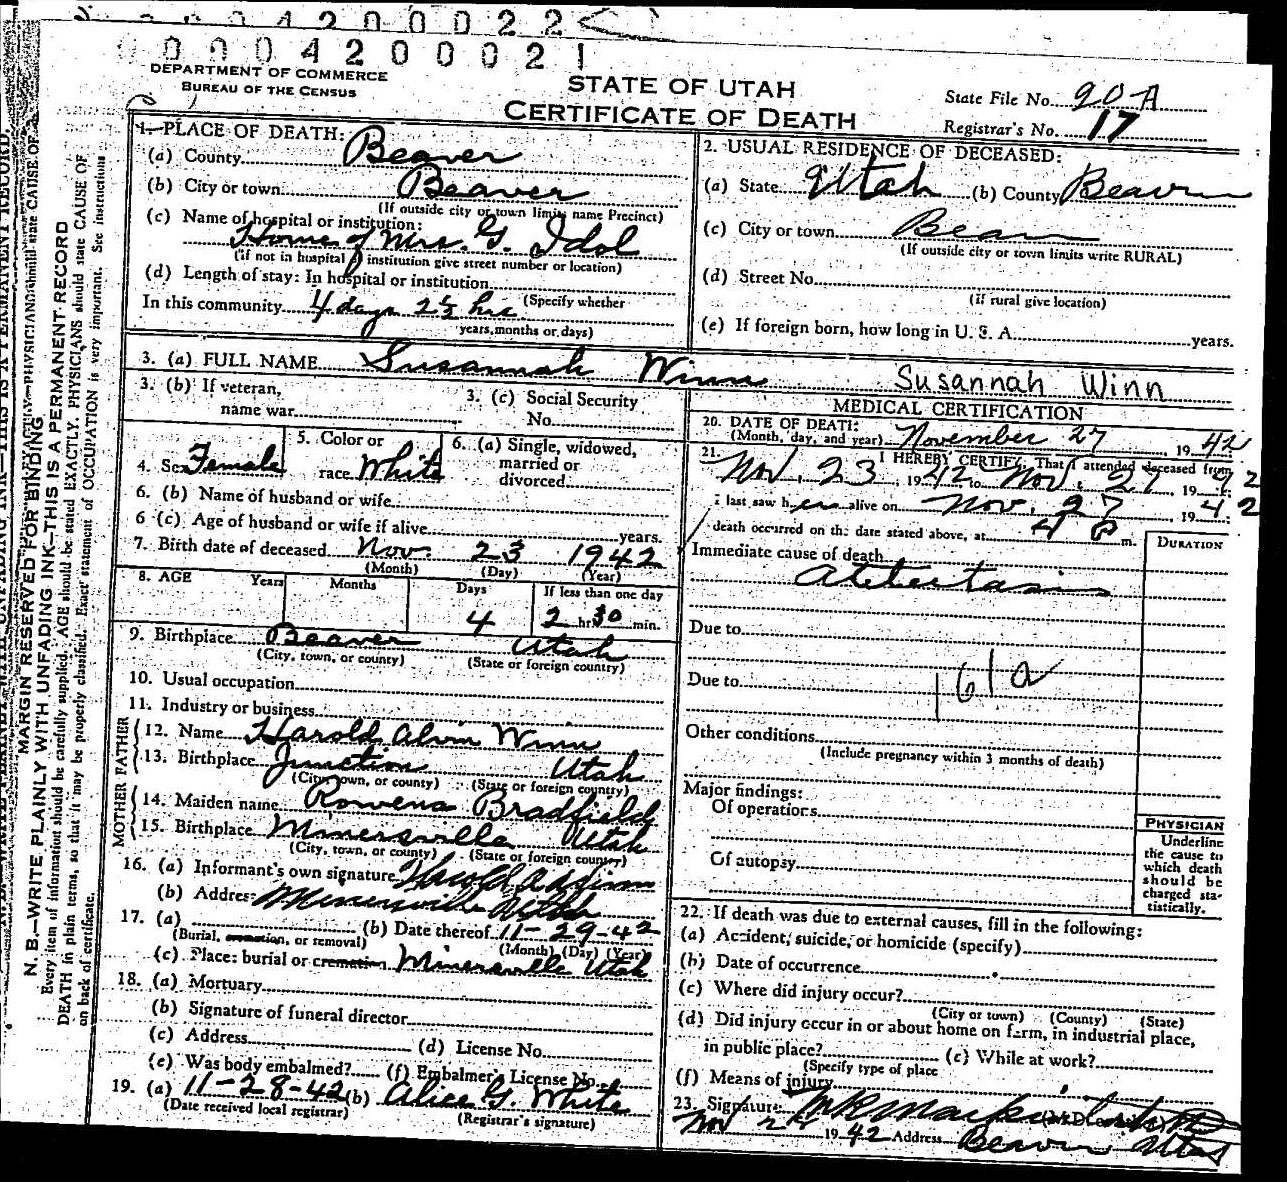 0 0 0 4 2 0 0 0 2 2
0 0 0 4 2 0 0 0 2 1
DEPARTMENT OF COMMERCE
BUREAU OF THE CENSUS
STATE OF UTAH
CERTIFICATE OF DEATH
State File No. 90 A
Registrar's No. 17
N. B.—WRITE PLAINLY WITH UNFADING INK—THIS IS A PERMANENT RECORD
MARGIN RESERVED FOR BINDING
Every item of information should be carefully supplied. AGE should be stated EXACTLY. PHYSICIANS should state CAUSE OF
DEATH in plain terms, so that it may be properly classified. Exact statement of OCCUPATION is very important. See instructions
on back of certificate.
1. PLACE OF DEATH:
(a) County Beaver
(b) City or town Beaver
(If outside city or town limits name Precinct)
(c) Name of hospital or institution:
Home of Mrs. G. Idol
(if not in hospital institution give street number or location)
(d) Length of stay: In hospital or institution
(Specify whether
In this community 4 days 2½ hrs
years, months or days)
2. USUAL RESIDENCE OF DECEASED:
(a) State Utah (b) County Beaver
(c) City or town Beaver
(If outside city or town limits write RURAL)
(d) Street No.
(if rural give location)
(e) If foreign born, how long in U. S. A. years.
3. (a) FULL NAME Susannah Winn Susannah Winn
3. (b) If veteran,
name war
3. (c) Social Security
No.
4. Sex Female
5. Color or
race White
6. (a) Single, widowed,
married or
divorced
6. (b) Name of husband or wife
6 (c) Age of husband or wife if alive years.
7. Birth date of deceased Nov. 23 1942
(Month) (Day) (Year)
8. AGE Years Months Days If less than one day
4 2 hr 30 min.
9. Birthplace Beaver Utah
(City, town, or county) (State or foreign country)
10. Usual occupation
11. Industry or business
FATHER
12. Name Harold Alvin Winn
13. Birthplace Junction Utah
(City, town, or county) (State or foreign country)
MOTHER
14. Maiden name Rowena Bradfield
15. Birthplace Minersville Utah
(City, town, or county) (State or foreign country)
16. (a) Informant's own signature Harold A Winn
(b) Address Minersville Utah
17. (a) (b) Date thereof 11-29-42
(Burial, cremation, or removal) (Month) (Day) (Year)
(c) Place: burial or cremation Minersville Utah
18. (a) Mortuary
(b) Signature of funeral director
(c) Address (d) License No.
(e) Was body embalmed? (f) Embalmer's License No.
19. (a) 11-28-42 (b) Alice G. White
(Date received local registrar) (Registrar's signature)
MEDICAL CERTIFICATION
20. DATE OF DEATH:
(Month, day, and year) November 27 1942
21. I HEREBY CERTIFY, That I attended deceased from
Nov. 23, 1942 to Nov. 27 1942
I last saw her alive on Nov. 27 1942
death occurred on the date stated above, at 4 P m.
DURATION
Immediate cause of death
Atelectasis
Due to
161a
Due to
Other conditions
(Include pregnancy within 3 months of death)
Major findings:
Of operations
Of autopsy
PHYSICIAN
Underline
the cause to
which death
should be
charged sta-
tistically.
22. If death was due to external causes, fill in the following:
(a) Accident, suicide, or homicide (specify)
(b) Date of occurrence
(c) Where did injury occur?
(City or town) (County) (State)
(d) Did injury occur in or about home on farm, in industrial place,
in public place? (e) While at work?
(Specify type of place
(f) Means of injury
23. Signature
Nov 1942 Address Beaver Utah